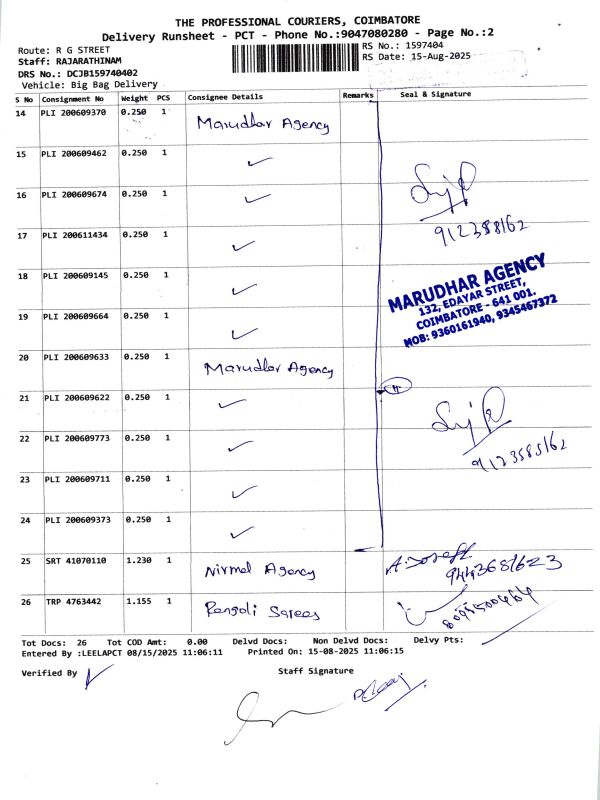 THE PROFESSIONAL COURIERS, COIMBATORE
Delivery Runsheet - PCT - Phone No.:9047080280 - Page No.:2
Route: R G STREET
RS No.: 1597404
Staff: RAJARATHINAM
RS Date: 15-Aug-2025
DRS No.: DCJB159740402
Vehicle: Big Bag Delivery
S No Consignment No Weight PCS Consignee Details Remarks Seal & Signature
14 PLI 200609370 0.250 1 Marudhar Agency
15 PLI 200609462 0.250 1 ✓
16 PLI 200609674 0.250 1 ✓
17 PLI 200611434 0.250 1 ✓
912388162
18 PLI 200609145 0.250 1 ✓
MARUDHAR AGENCY
132, EDAYAR STREET,
COIMBATORE - 641 001.
MOB: 9360161940, 9345467372
19 PLI 200609664 0.250 1 ✓
20 PLI 200609633 0.250 1 Marudhar Agency
21 PLI 200609622 0.250 1 ✓
22 PLI 200609773 0.250 1 ✓
23 PLI 200609711 0.250 1 ✓
24 PLI 200609373 0.250 1 ✓
25 SRT 41070110 1.230 1 Nirmal Agency
9443681623
26 TRP 4763442 1.155 1 Rangoli Sarees
Tot Docs: 26 Tot COD Amt: 0.00 Delvd Docs: Non Delvd Docs: Delvy Pts:
Entered By :LEELAPCT 08/15/2025 11:06:11 Printed On: 15-08-2025 11:06:15
Verified By ✓ Staff Signature